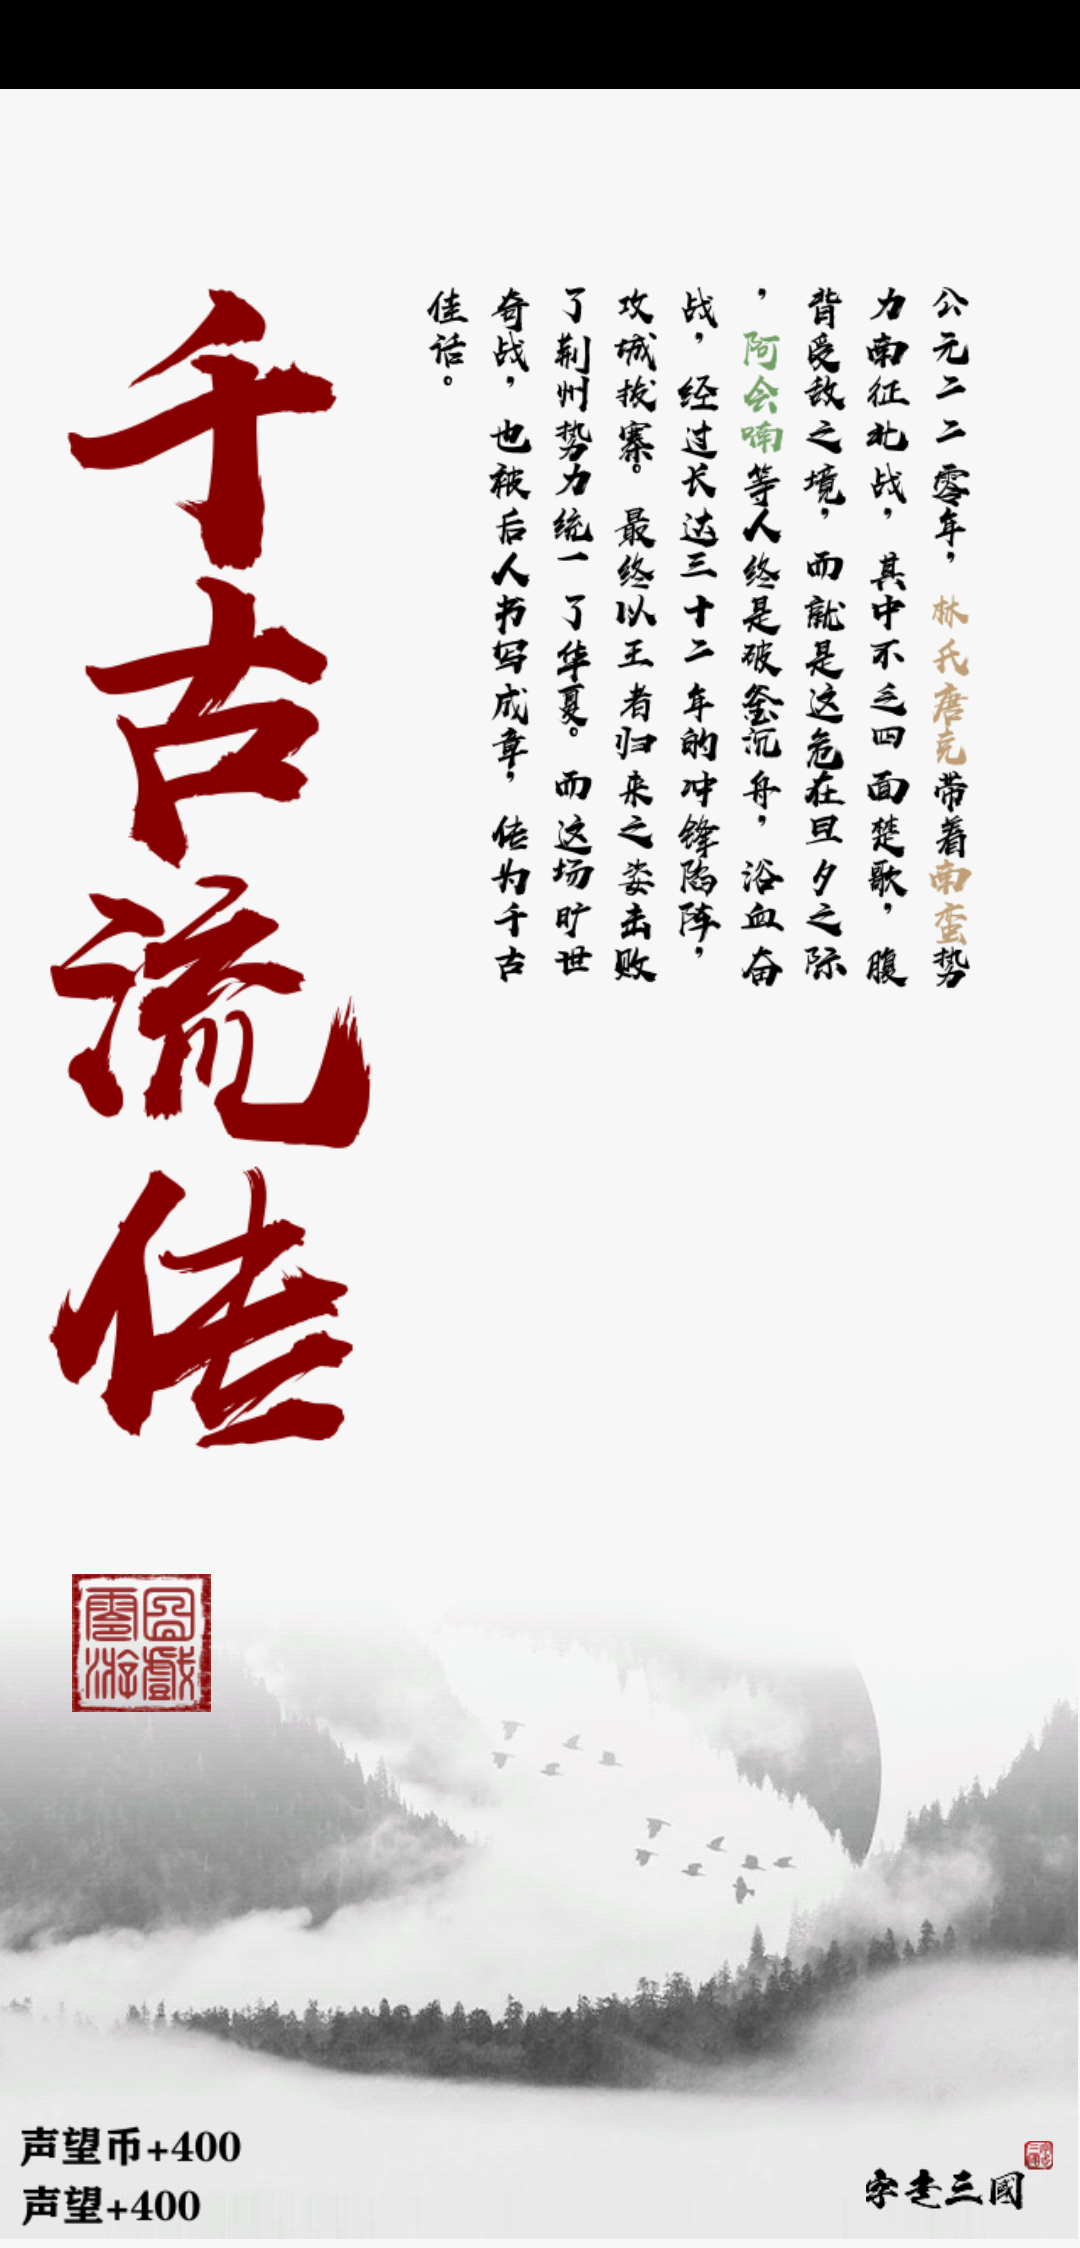 公元二二零年，林氏唐克带着南蛮势
力南征北战，其中不乏四面楚歌，腹
背受敌之境，而就是这危在旦夕之际
，阿会喃等人终是破釜沉舟，浴血奋
战，经过长达三十二年的冲锋陷阵，
攻城拔寨。最终以王者归来之姿击败
了荆州势力统一了华夏。而这场旷世
奇战，也被后人书写成章，传为千古
佳话。
千古流传
声望币+400
声望+400
字走三國